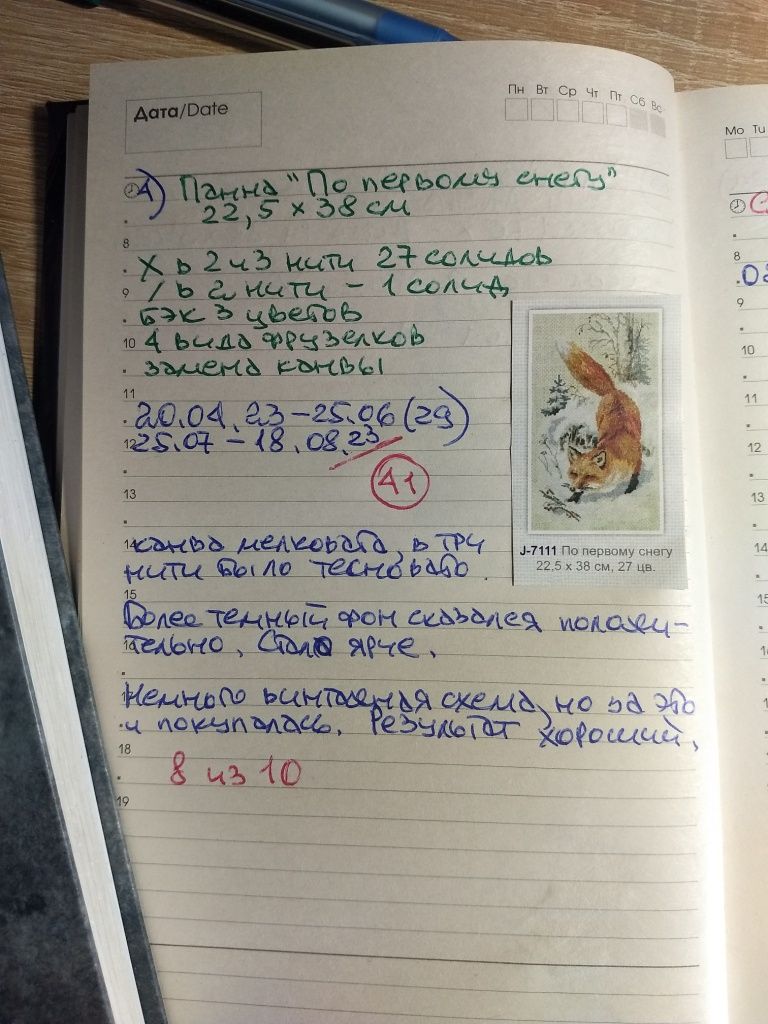 Дата/Date
Пн Вт Ср Чт Пт Сб Вс
4) Панна "По первому снегу"
22,5 x 38 см
8
X в 2 и 3 нити 27 солидов
9 / в 2 нити - 1 солид
бэк 3 цветов
10 4 вида фрузелков
замена канвы
11
20.04.23 - 25.06 (29)
12 25.07 - 18.08.23
41
13
14 канва мелковата, в три
нити было тесновато.
15
Более темный фон сказался положи-
тельно. Стало ярче.
Немного винтажная схема, но за это
и покупалась. Результат хороший.
18
8 из 10
19
J-7111 По первому снегу
22,5 x 38 см, 27 цв.
Mo Tu
8
9
10
11
12
13
14